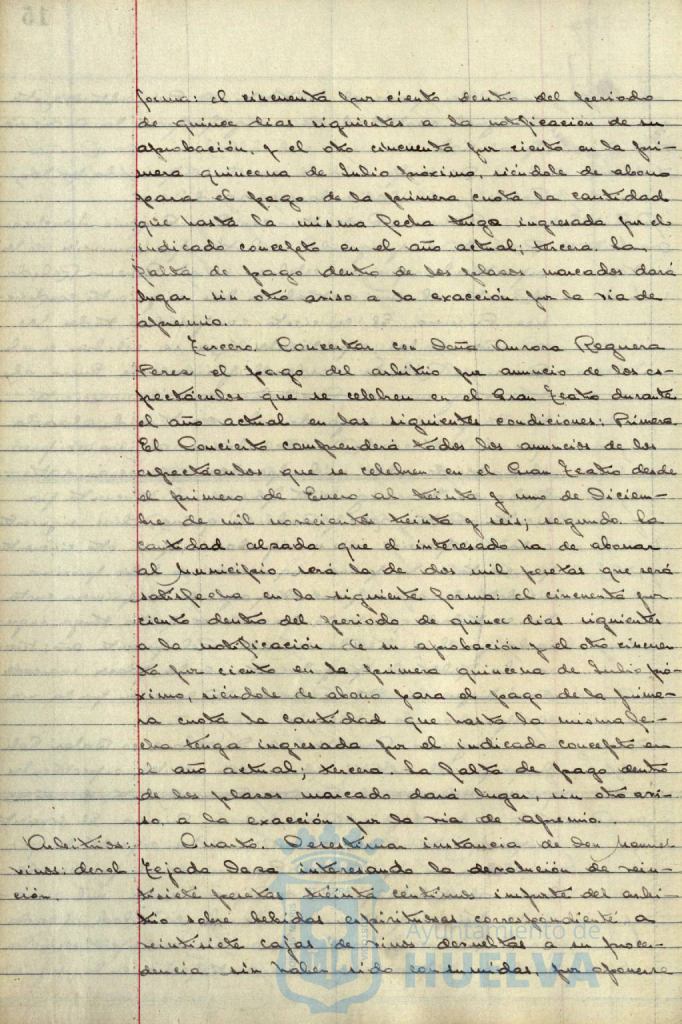 forma: el cincuenta por ciento dentro del periodo
de quince dias siguientes a la notificación de su
aprobación, y el otro cincuenta por ciento en la pri-
mera quincena de Julio próximo, siéndole de abono
para el pago de la primera cuota la cantidad
que hasta la misma fecha tenga ingresada por el
indicado concepto en el año actual; tercera. La
falta de pago dentro de los plasos marcados dará
lugar sin otro aviso a la exacción por la via de
apremio.
Tercero. Concertar con Doña Aurora Reguera
Peres el pago del arbitrio por anuncio de los es-
pectáculos que se celebren en el Gran Teatro durante
el año actual en las siguientes condiciones: Primera.
El Concierto comprenderá todos los anuncios de los
espectáculos que se celebren en el Gran Teatro desde
el primero de Enero al treinta y uno de Diciem-
bre de mil novecientos treinta y seis; segundo. La
cantidad alzada que el interesado ha de abonar
al Municipio será la de dos mil pesetas que será
satisfecha en la siguiente forma: el cincuenta por
ciento dentro del periodo de quince dias siguientes
a la notificación de su aprobación y el otro cincuen
ta por ciento en la primera quincena de Julio pró-
ximo, siéndole de abono para el pago de la prime-
ra cuota la cantidad que hasta la misma fe-
cha tenga ingresada por el indicado concepto en
el año actual; tercera. La falta de pago dentro
de los plasos marcado dará lugar, sin otro avi-
so, a la exacción por la via de apremio.
Arbitrios: Cuarto. Desestimar instancia de don Manuel
vinos: devolu Tejada Daza interesando la devolución de vein-
ción. tisiete pesetas treinta céntimos importe del arbi-
trio sobre bebidas espirituosas correspondiente a
veintisiete cajas de vinos devueltas a su proce-
dencia sin haber sido consumidas, por oponerse
Ayuntamiento de
HUELVA